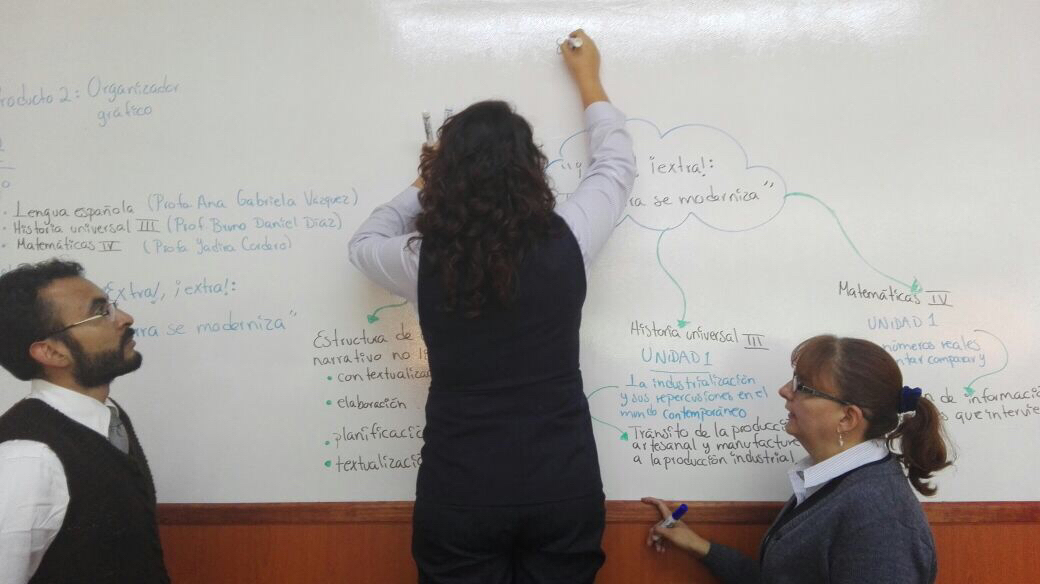 roducto 2: Organizador
gráfico
Lengua española (Profa. Ana Gabriela Vázquez)
Historia universal III (Prof. Bruno Daniel Díaz)
Matemáticas IV (Profa Yadira Cordero)
Extra!, ¡extra!:
rra se moderniza"
¡extra!:
ra se moderniza"
Estructura de
narrativo no li
• contextualiza
• elaboración
• planificaci
• textualizació
Historia universal III
UNIDAD 1
La industrialización
y sus repercusiones en el
mundo contemporáneo
Tránsito de la producc
artesanal y manufacture
a la producción industrial
Matemáticas IV
UNIDAD 1
números reales
ntar comparar y
n de informació
s que intervie